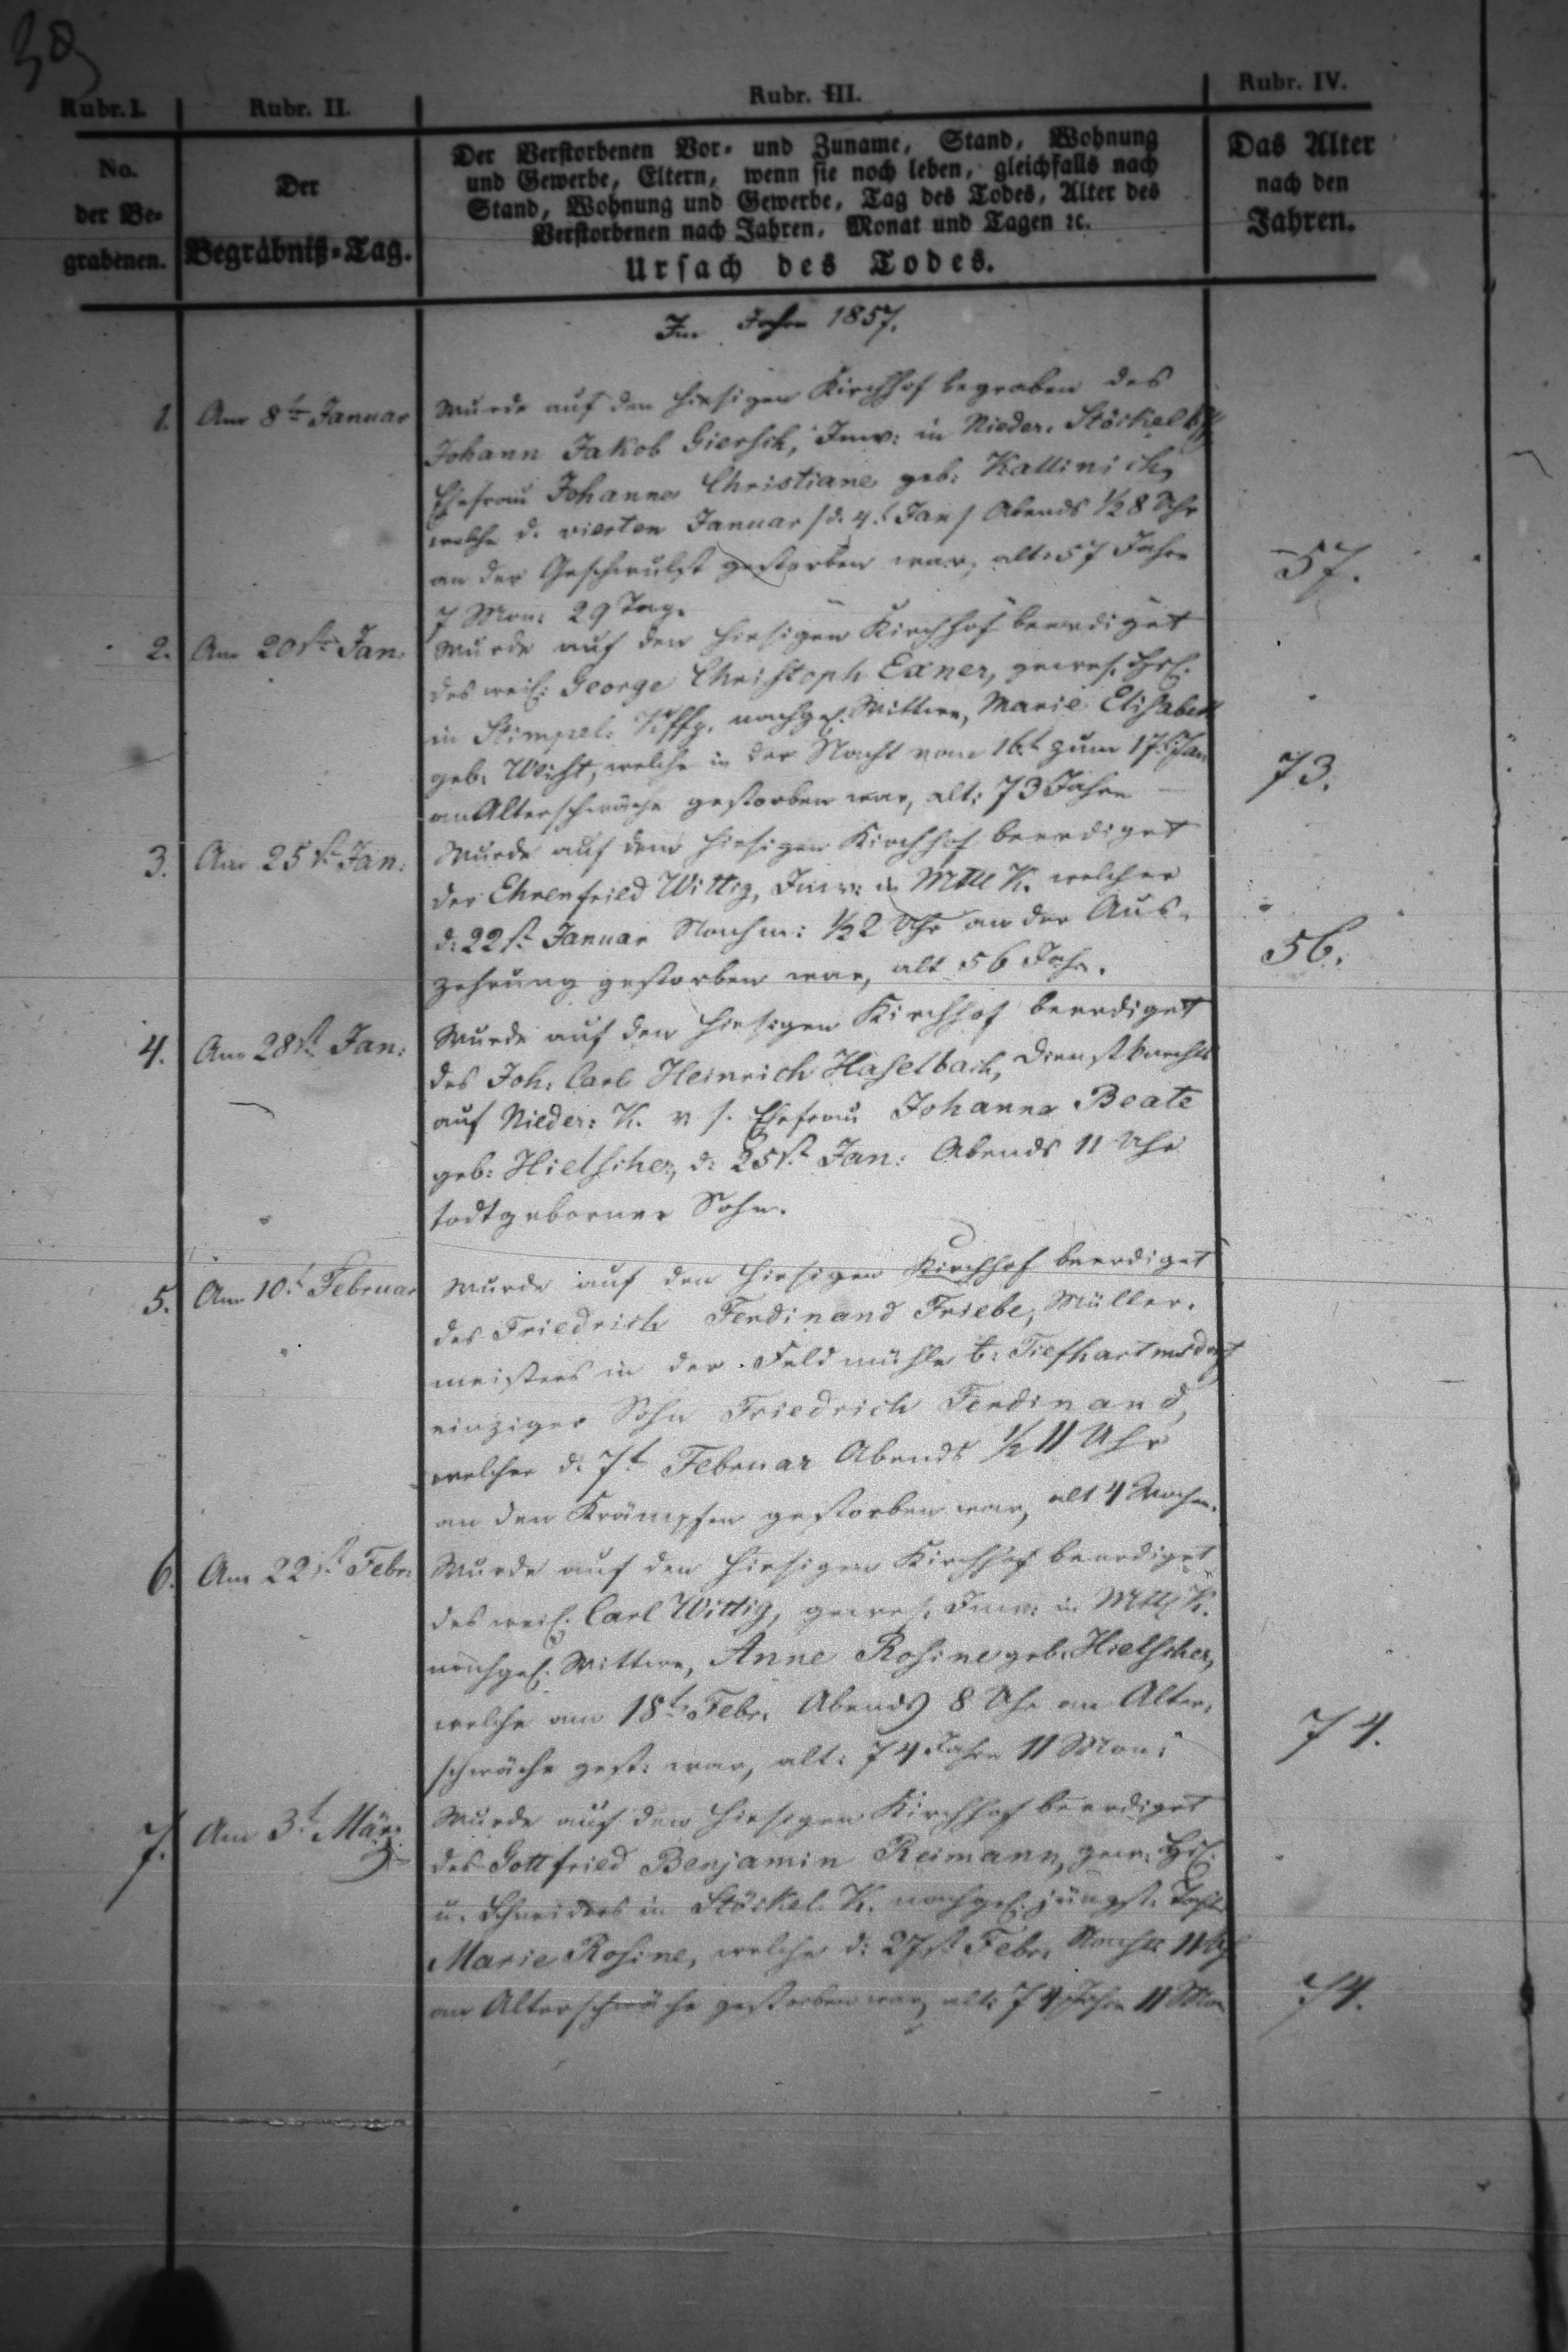 Rubr. I. Rubr. II. Rubr. III. Rubr. IV.
No. der Be- grabenen.
Der Begräbniß-Tag.
Der Verstorbenen Vor- und Zuname, Stand, Wohnung
und Gewerbe, Eltern, wenn sie noch leben, gleichfalls nach
Stand, Wohnung und Gewerbe, Tag des Todes, Alter des
Verstorbenen nach Jahren, Monat und Tagen ꝛc.
Ursach des Todes.
Das Alter nach den Jahren.
Im Jahre 1857.
1. Am 8t Januar Wurde auf den hiesigen Kirchhof begraben des
Johann Jakob Giersch, Inw: in Nieder. Stöckel
Ehefrau Johanne Christiane geb: Kallinich,
welche d. vierten Januar /d. 4t Jan/ Abends ½8 Uhr
an der Geschwulst gestorben war, alt: 57 Jahre 57.
7 Mon: 29 Tag.
2. Am 20st Jan. Wurde auf den hiesigen Kirchhof beerdiget
des weil: George Christoph Exner, gewes.
in Stimpel. Kffg. nachgel. Wittwe, Marie Elisabeth
geb: welche in der Nacht vom 16t zum 17t Jan
an Alterschwäche gestorben war, alt: 73 Jahre 73.
3. Am 25st Jan: Wurde auf dem hiesigen Kirchhof beerdiget
der Ehrenfried Wittig, Inw: in Mttl K. welcher
d: 22st Januar Nachm: ½2 Uhr an der Aus-
zehrung gestorben war, alt 56 Jahr. 56.
4. Am 28st Jan: Wurde auf den hiesigen Kirchhof beerdiget
des Joh. Carl Heinrich Haselbach, Dienstknechts
auf Nieder: K. u s. Ehefrau Johanne Beate
geb: Hielscher, d: 25st Jan: Abends 11 Uhr
todtgeborner Sohn.
5. Am 10t Februar Wurde auf den hiesigen Kirchhof beerdiget
des Friedrich Ferdinand Friebe, Müller-
meisters in der Feldmühle b: Tiefhartmsdorf
einziger Sohn Friedrich Ferdinand,
welcher d: 7t Februar Abends ½11 Uhr
an den Krämpfen gestorben war, alt 4 Wochen.
6. Am 22st Febr: Wurde auf den hiesigen Kirchhof beerdiget
des weil. Carl Wittig, gewes. Inw: in Mttl K.
nachgel. Wittwe, Anne Rosine geb. Hielscher,
welche am 18t Febr. Abends 8 Uhr an Alter-
schwäche gest: war, alt: 74 Jahre 11 Mon: 74.
7. Am 3t März Wurde auf den hiesigen Kirchhof beerdiget
des Gottfried Benjamin Reimann, gew:
u. Schneiders in Stöckel. K. nachgel. jüngst. Tocht
Marie Rosine, welche d: 27st Febr. Nachts 11 Uhr
an Alterschwäche gestorben war, alt: 74 Jahre 11 Mon 74.